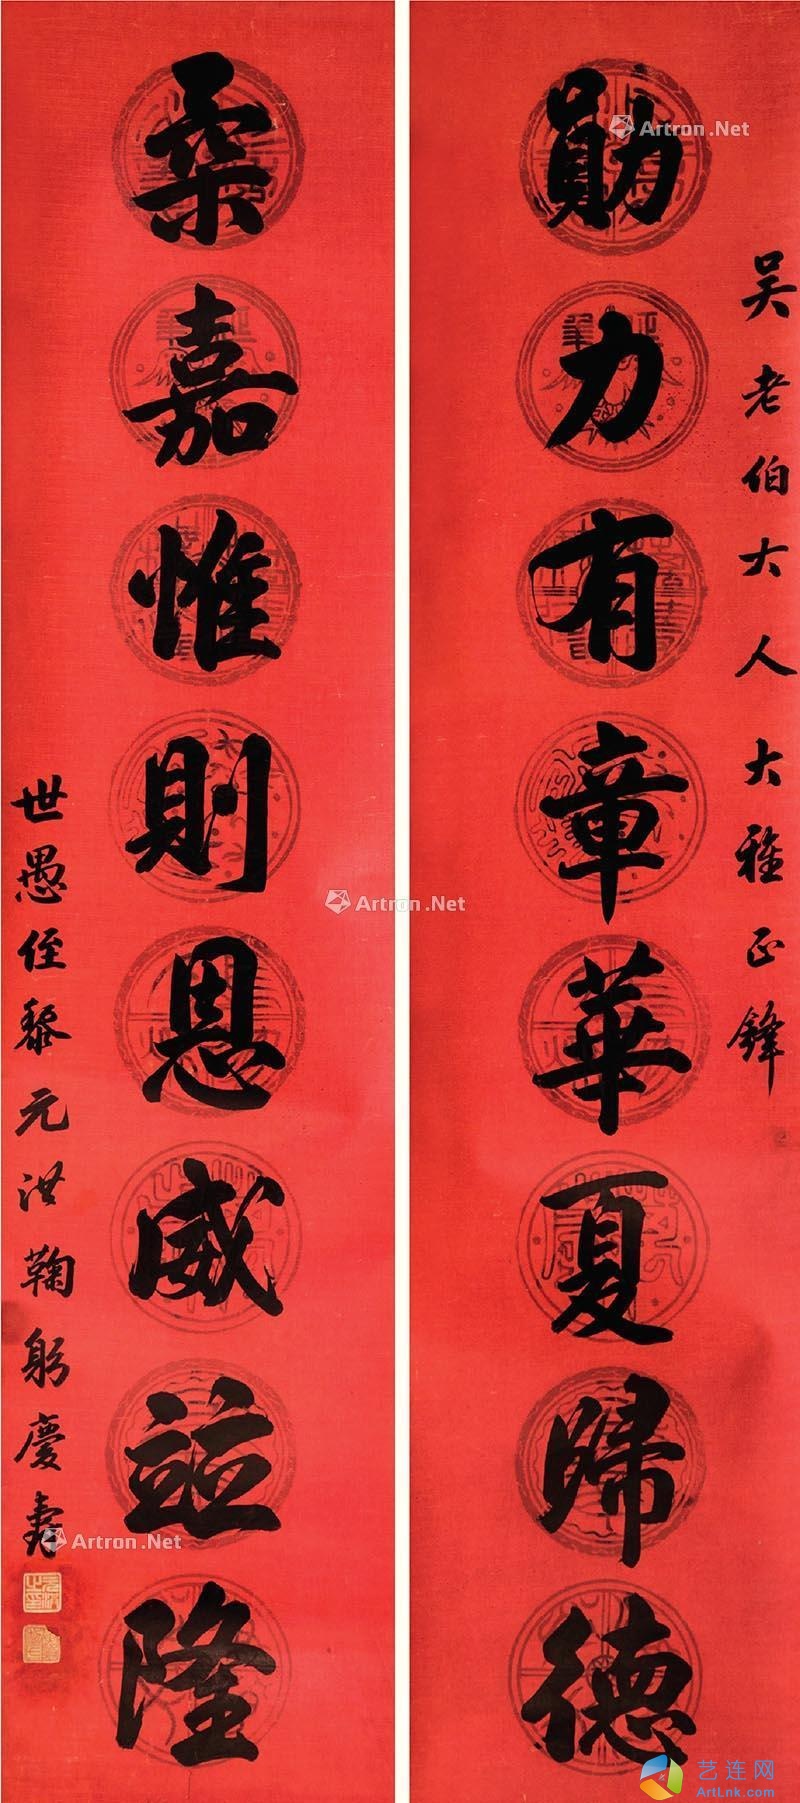 吴老伯大人大雅正鋒
勛力有章華夏歸德
柔嘉惟則恩威並隆
世愚侄黎元洪鞠躬慶壽
Artron.Net
Artron.Net
Artron.Net
艺连网
ArtLnk.com